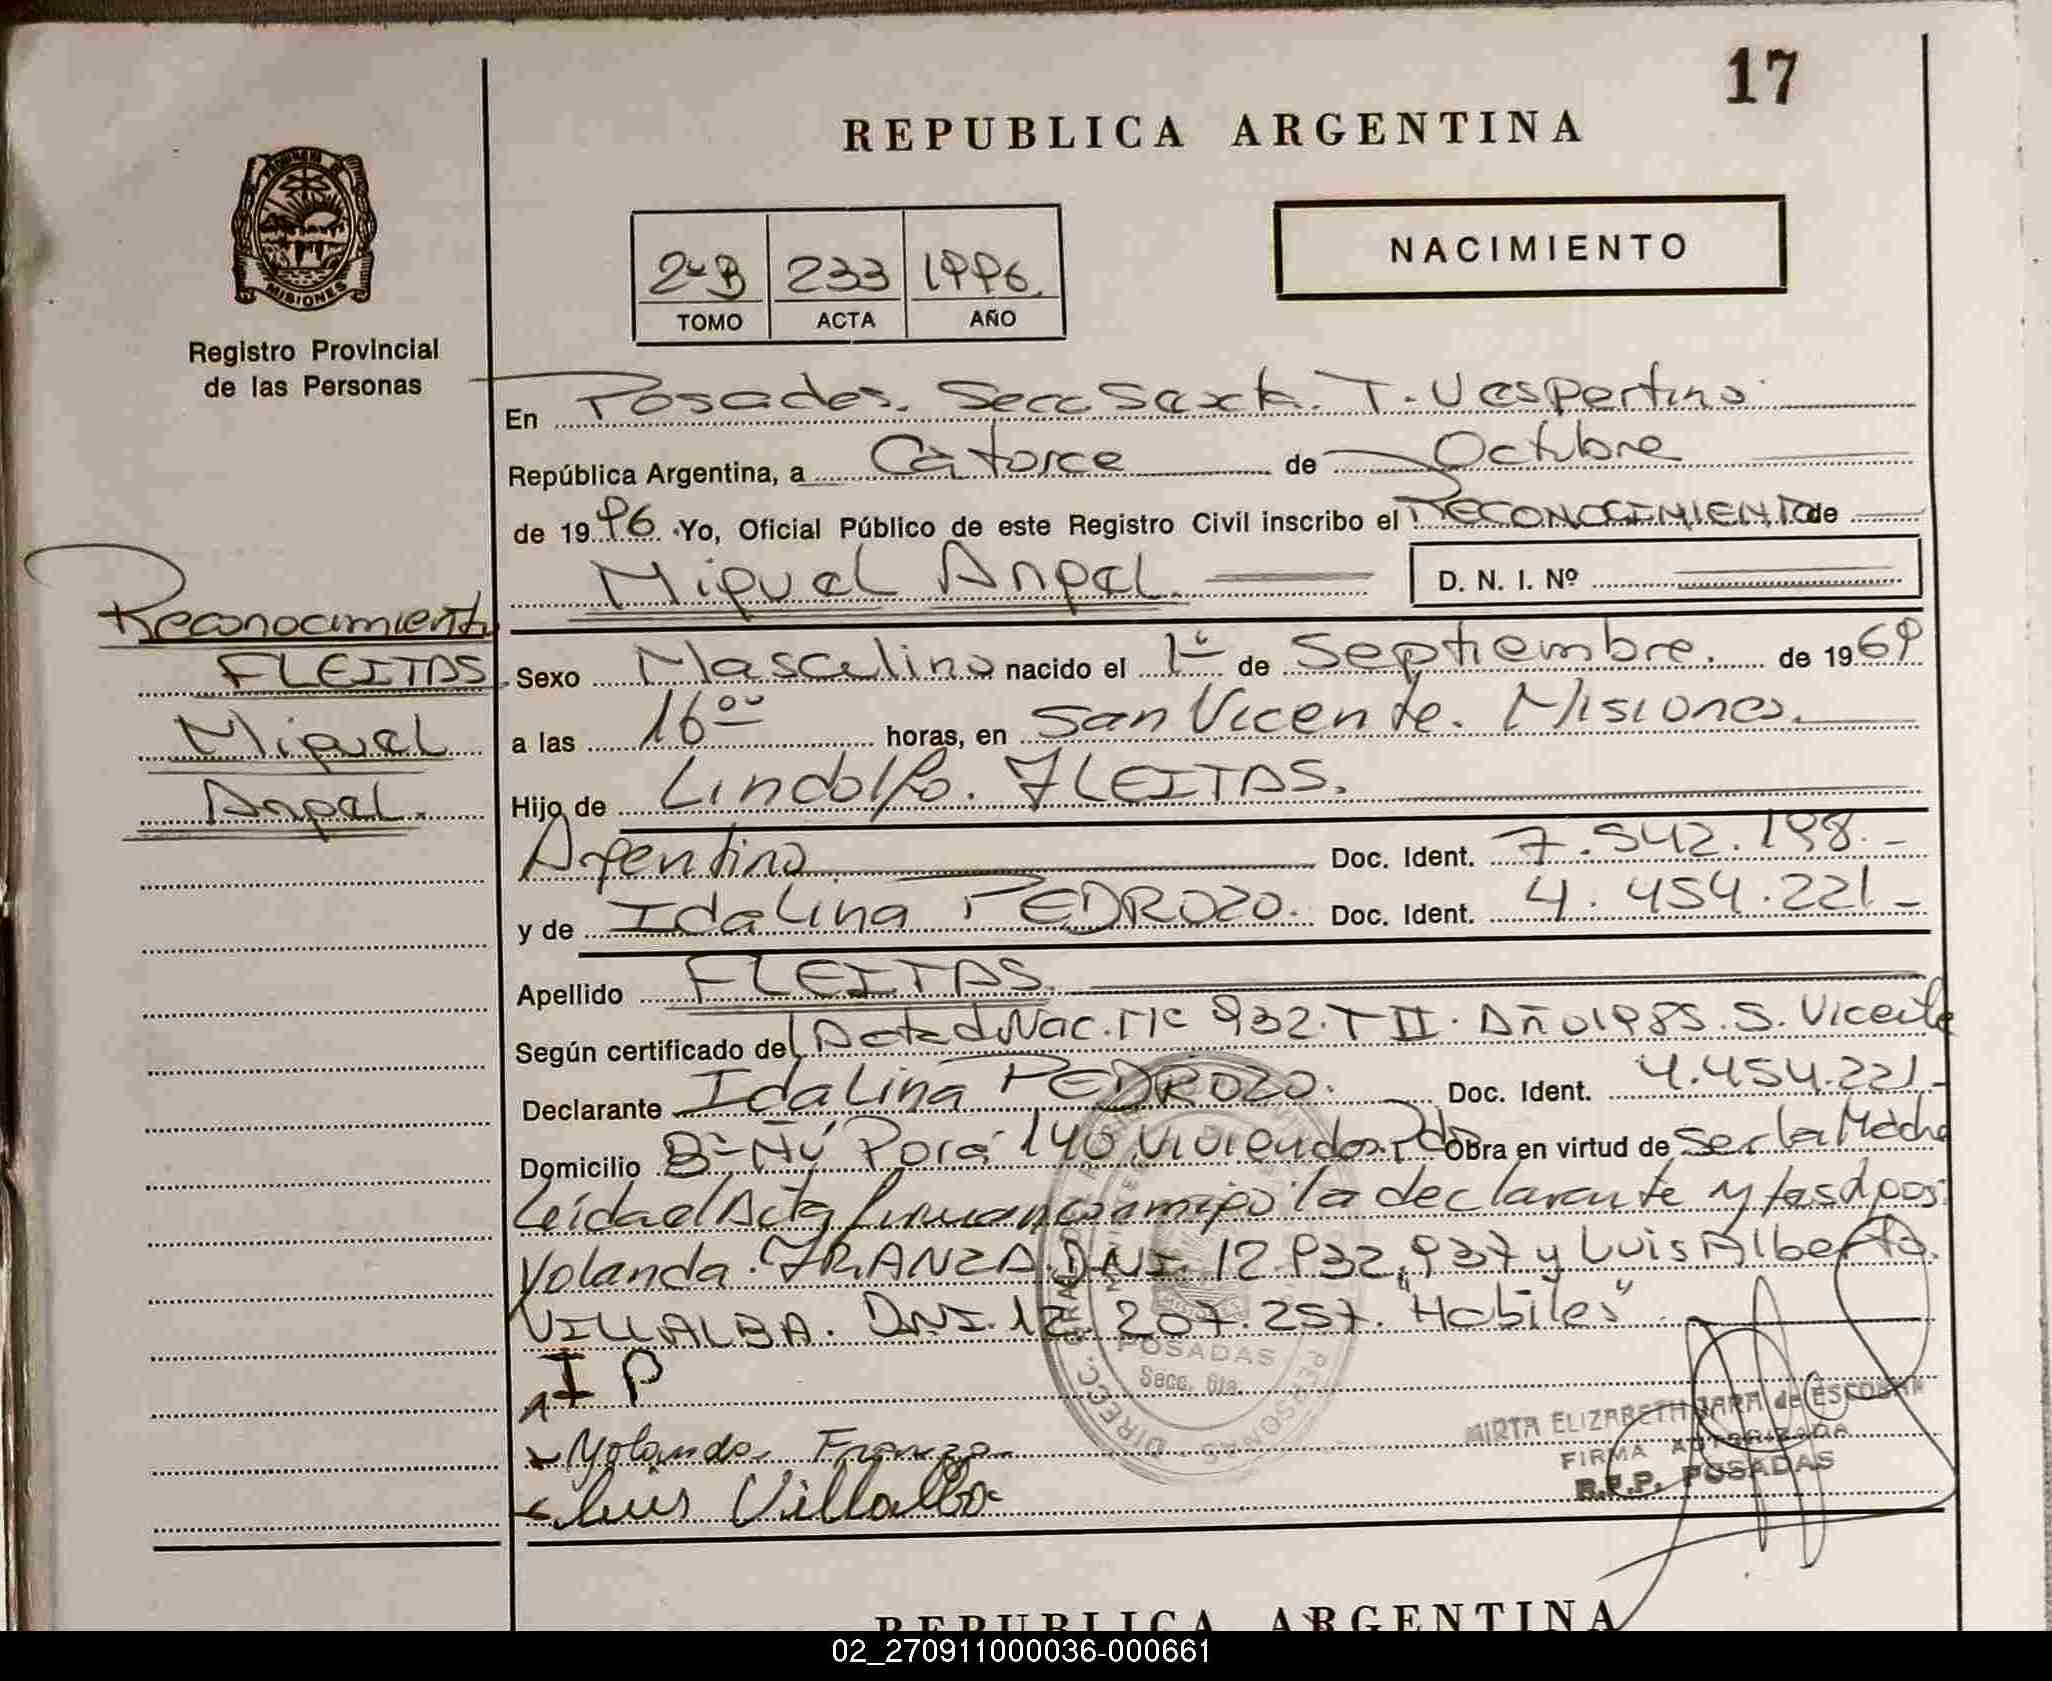 17
REPUBLICA ARGENTINA
NACIMIENTO
2º B 233 1996
TOMO ACTA AÑO
MISIONES
Registro Provincial
de las Personas
En Posadas. Secc Sexta. T. Vespertino
República Argentina, a Catorce de Octubre
de 1996 Yo, Oficial Público de este Registro Civil inscribo el RECONOCIMIENTO de
Miguel Angel. D. N. I. Nº
Reconocimiento
FLEITAS
Miguel
Angel.
Sexo Masculino nacido el 1º de Septiembre. de 1969
a las 16 00 horas, en San Vicente. Misiones.
Hijo de Lindolfo. FLEITAS.
Argentino Doc. Ident. 7.542.198.-
y de Idalina PEDROZO. Doc. Ident. 4.454.221-
Apellido FLEITAS.
Según certificado del Acta d Nac. Nº 932. T II. Año 1985. S. Vicente
Declarante Idalina PEDROZO. Doc. Ident. 4.454.221-
Domicilio Bº Ñú Porá 140 Viviendas Pdas Obra en virtud de ser la Madre
Leída el Acta firman conmigo la declarante y tesd pos
Yolanda. FRANZA. DNI. 12.932.937 y Luis Alberto.
VILLALBA. DNI. 12.207.257. "Habiles"
I P
Yolanda Franza
Luis Villalba
POSADAS
Secc. 6ta.
MIRTA ELIZABETH JARA de ESCOBAR
FIRMA AUTORIZADA
R.P.P. POSADAS
REPUBLICA ARGENTINA
02_270911000036-000661